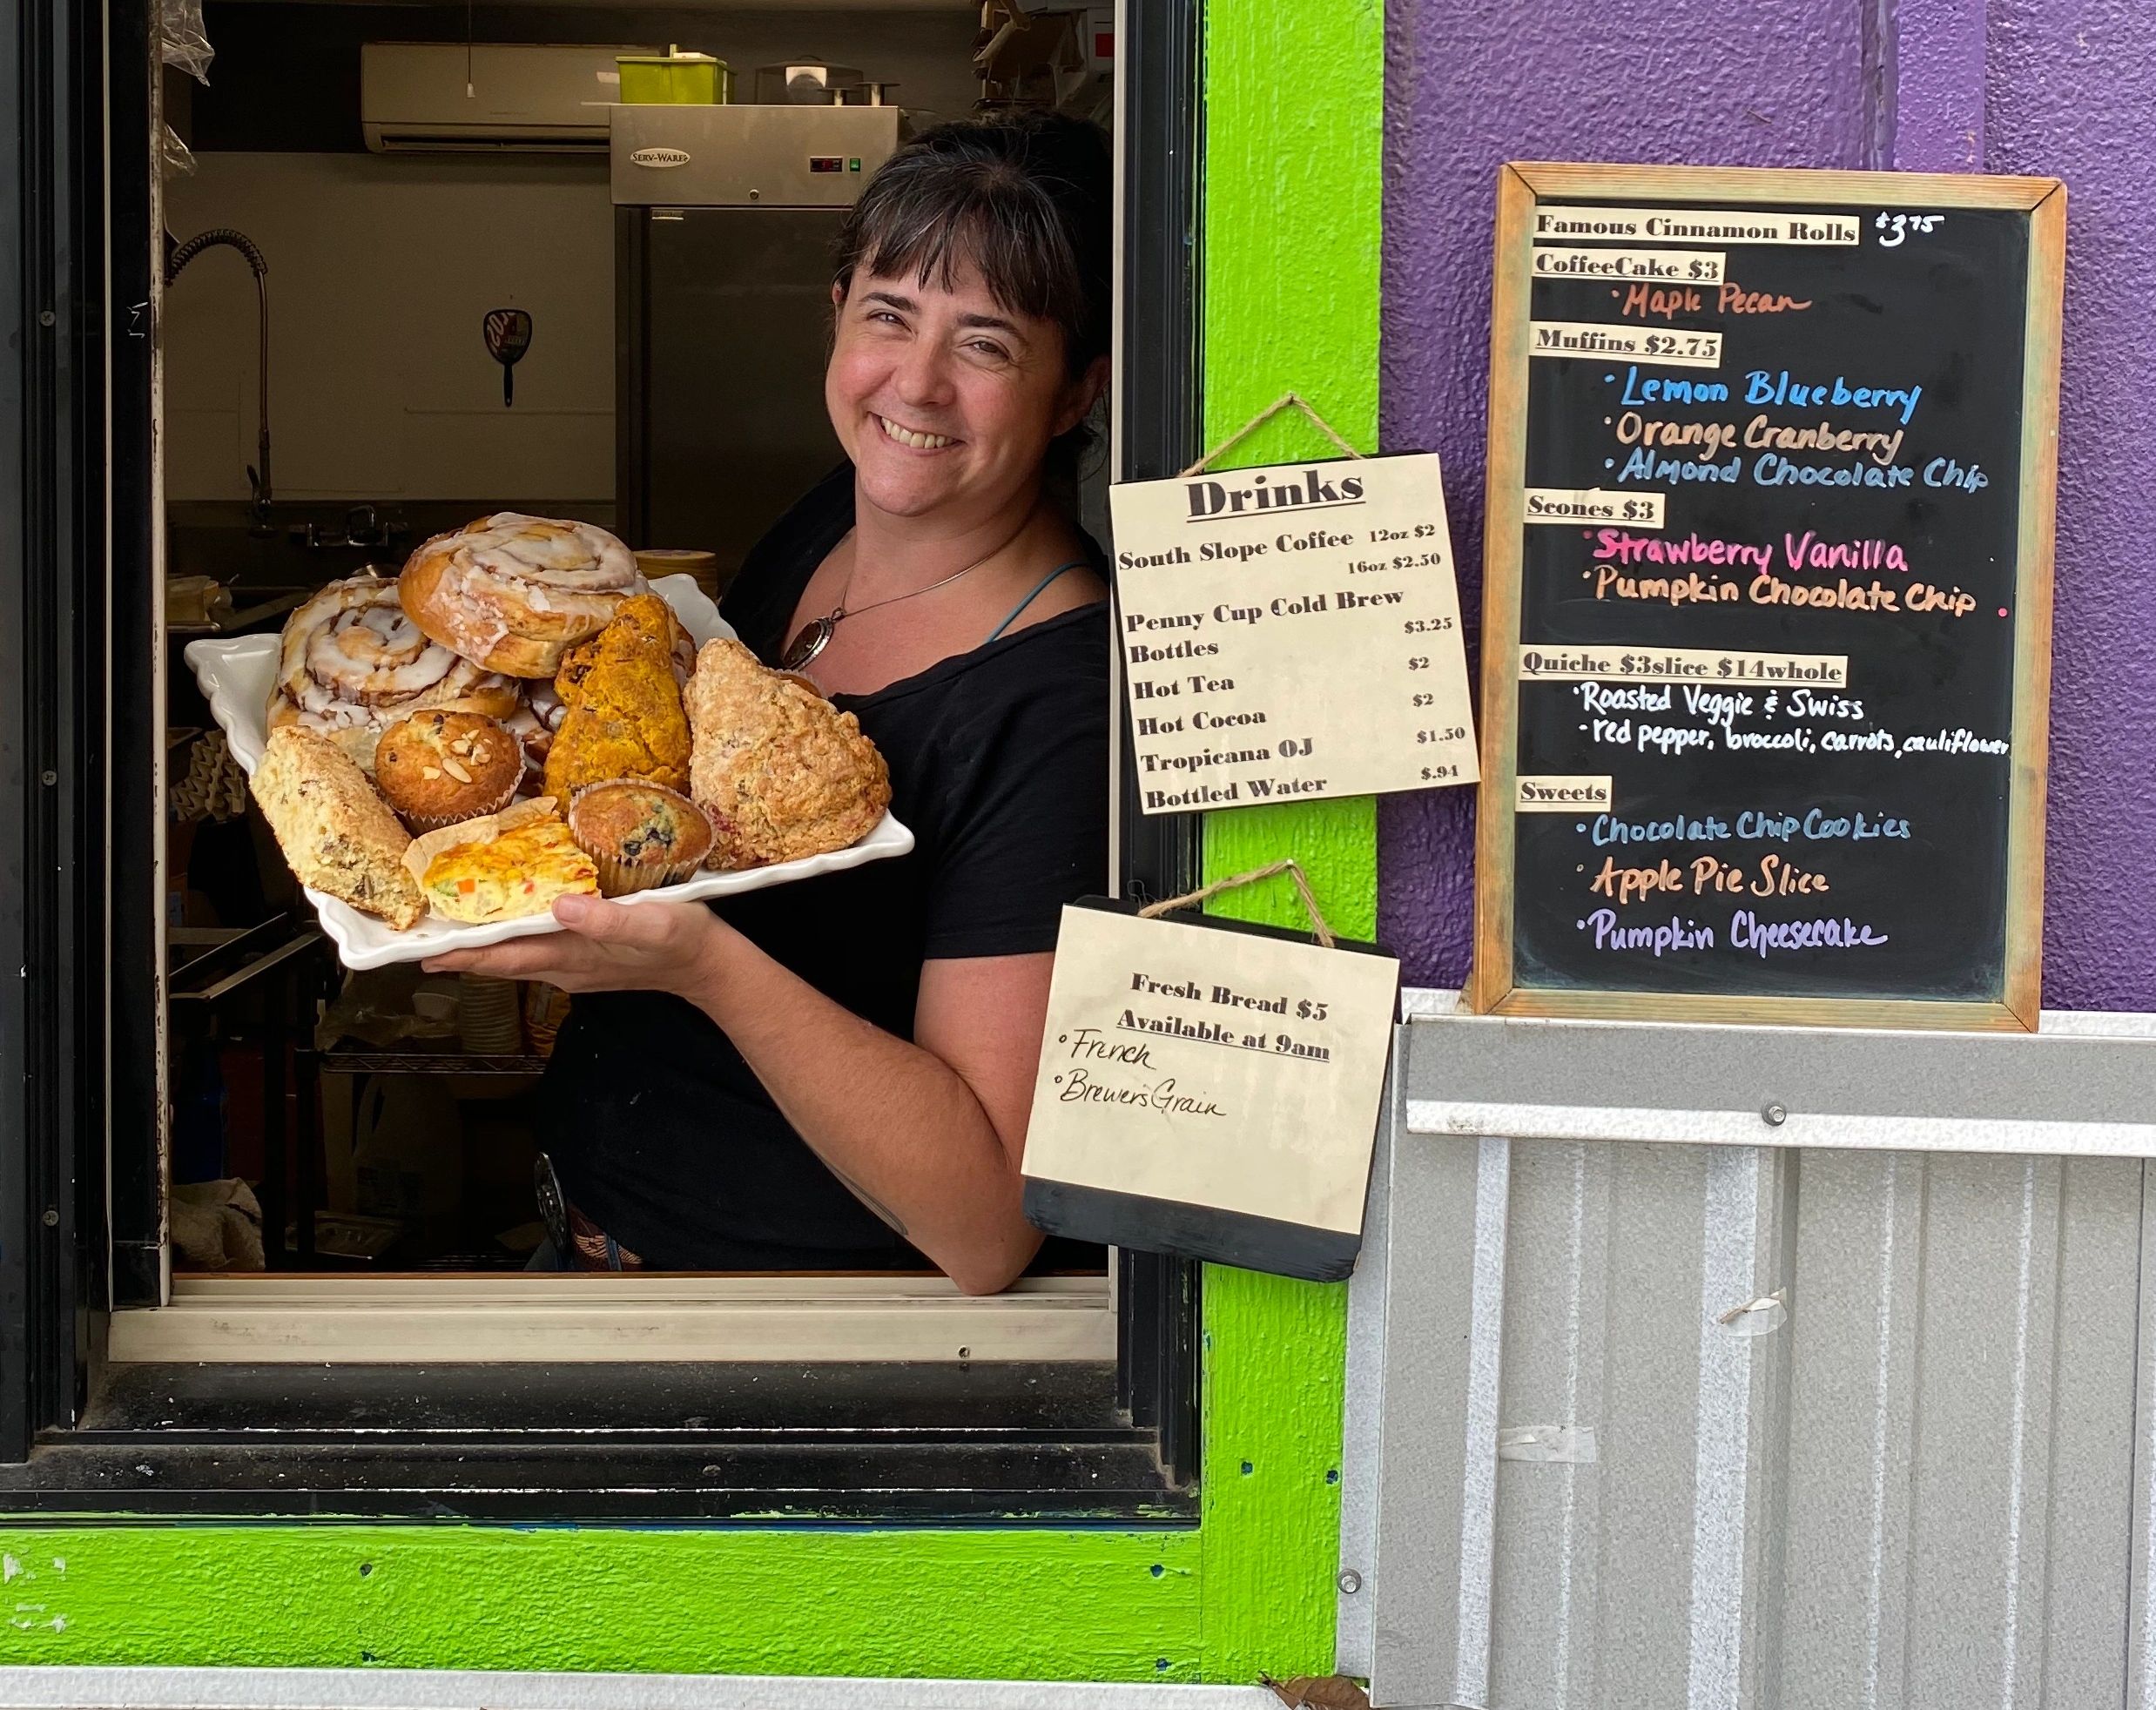 SERV-WARE
Drinks
South Slope Coffee 12oz $2
16oz $2.50
Penny Cup Cold Brew
Bottles $3.25
Hot Tea $2
Hot Cocoa $2
Tropicana OJ $1.50
Bottled Water $.94
Fresh Bread $5
Available at 9am
• French
• Brewers Grain
Famous Cinnamon Rolls $3.75
CoffeeCake $3
• Maple Pecan
Muffins $2.75
• Lemon Blueberry
• Orange Cranberry
• Almond Chocolate Chip
Scones $3
• Strawberry Vanilla
• Pumpkin Chocolate Chip
Quiche $3slice $14whole
• Roasted Veggie & Swiss
- red pepper, broccoli, carrots, cauliflower
Sweets
• Chocolate Chip Cookies
• Apple Pie Slice
• Pumpkin Cheesecake